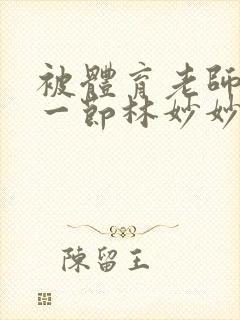 被體育老師
一節林妙妙
陳留王